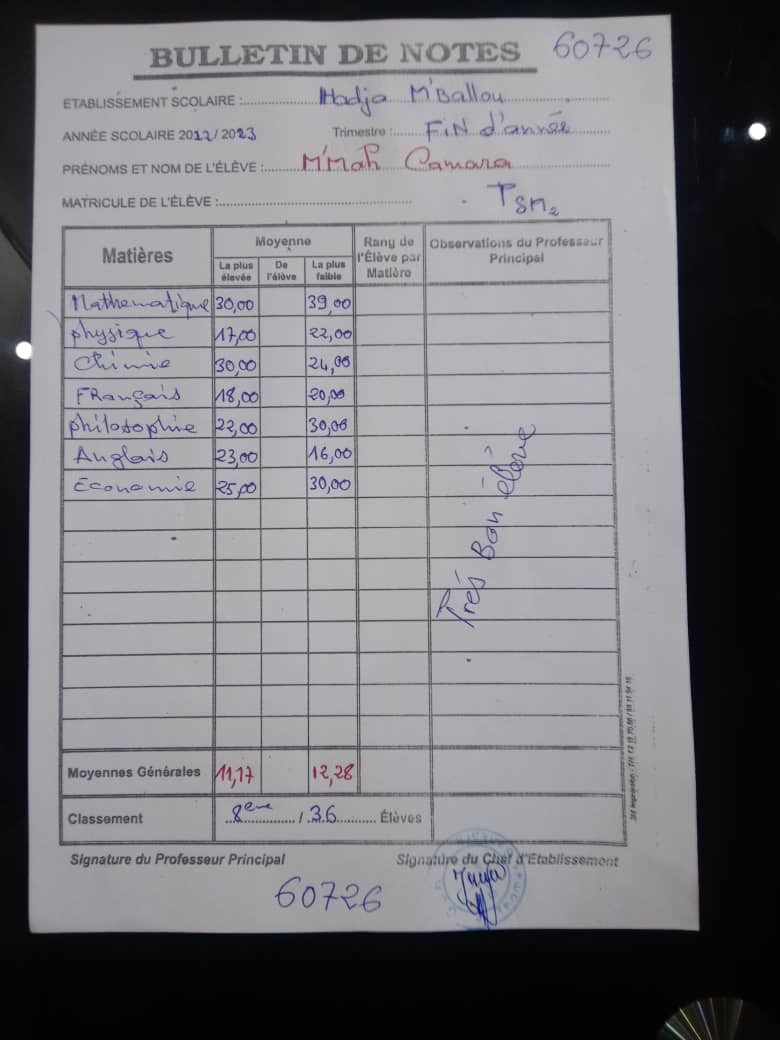 BULLETIN DE NOTES 60726
ETABLISSEMENT SCOLAIRE : Hadja M'Ballou
ANNÉE SCOLAIRE 2022/2023 Trimestre : FiN d'année
PRÉNOMS ET NOM DE L'ÉLÈVE : M'Mah Camara
MATRICULE DE L'ÉLÈVE : TSM2
Matières Moyenne Rang de l'Élève par Matière Observations du Professeur Principal
La plus élevée De l'élève La plus faible
Mathematique 30,00 39,00
physique 17,00 22,00
Chimie 30,00 24,00
FRançais 18,00 20,00
philosophie 22,00 30,00
Anglais 23,00 16,00
Economie 25,00 30,00
Très Bon élève
Moyennes Générales 11,17 12,28
Classement 8eme / 36 Élèves
Signature du Professeur Principal Signature du Chef d'Etablissement
60726